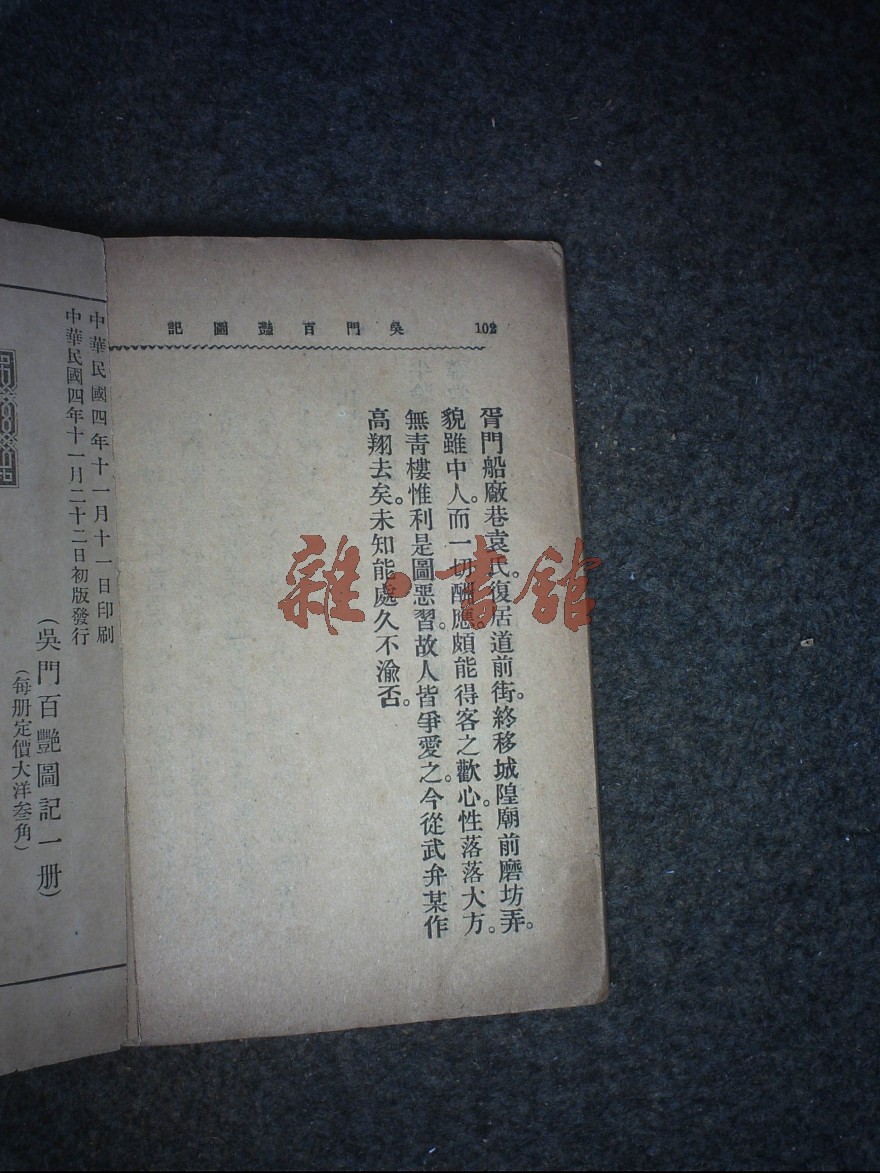 102 吳門百豔圖記
胥門船廠巷袁氏。復居道前街。終移城隍廟前磨坊弄。
貌雖中人。而一切酬應。頗能得客之歡心。性落落大方。
無青樓惟利是圖惡習。故人皆爭愛之。今從武弁某作
高翔去矣。未知能處久不渝否。
中華民國四年十一月十一日印刷
中華民國四年十一月二十二日初版發行
(吳門百艷圖記一册)
(每册定價大洋叁角)
雜·書館